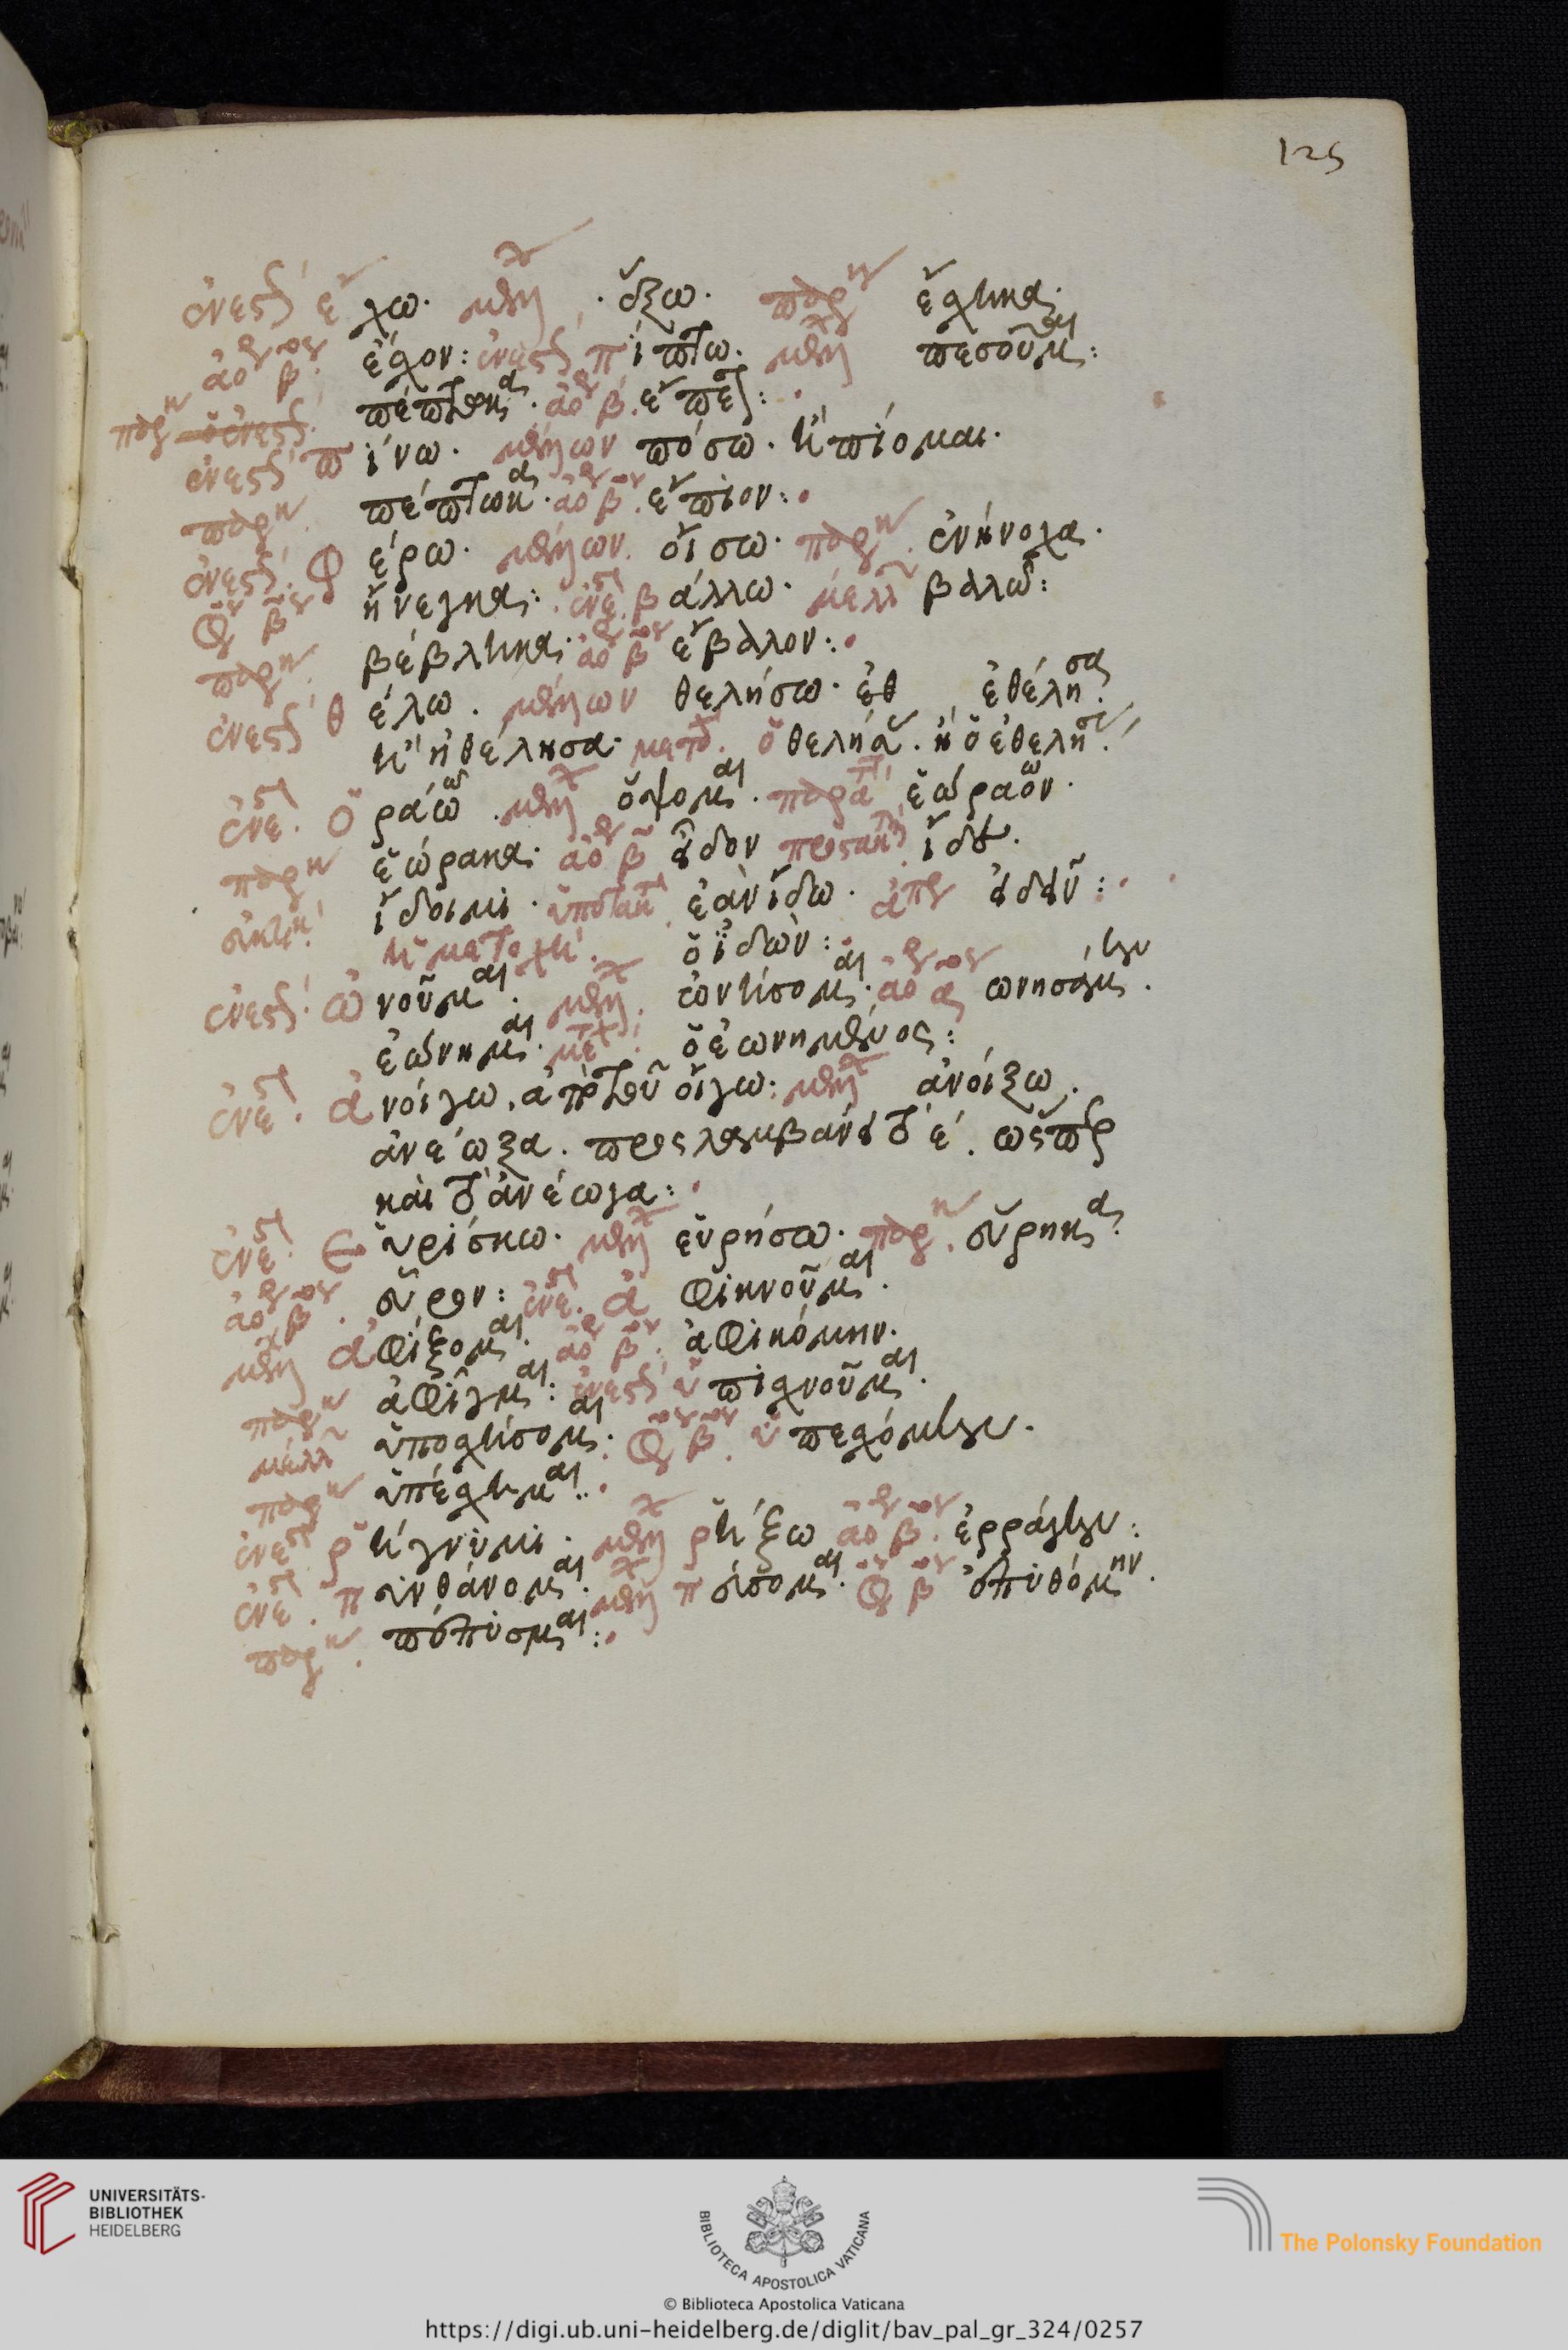 125
ἐνεστ ἔχω. μέλλ. ἕξω. παρκ ἔσχηκα.
ἀορ β. ἔσχον: ἐνεστ πίπτω. μέλλ πεσοῦμαι:
παρκ ἐνεστ. πέπτωκα. ἀορ β. ἔπεσ:
ἐνεστ πίνω. μέλλων πόσω. ἢ πίομαι.
παρκ. πέπωκα. ἀορ β. ἔπιον:
ἐνεστ. φέρω. μέλλων. οἴσω. παρκ. ἐνήνοχα.
β ἤνεγκα: ἐνε. βάλλω. μέλλ βαλῶ:
παρκ. βέβληκα. ἀορ β ἔβαλον:
ἐνεστ θέλω. μέλλων θελήσω. ἐθ ἐθέλησα.
ἢ ἠθέλησα. μετο. ὁ θελήσα. ἢ ὁ ἐθελήσ.
ἐνε. ὁράω. μέλλ ὄψομαι. παρατ ἑώραον.
παρκ ἑώρακα. ἀορ β εἶδον προστακτ ἴδε.
εὐκτικ. ἴδοιμι. ὑποτακτ ἐὰν ἴδω. ἀπρ ἰδεῖν:
ἡ μετοχὴ. ὁ ἰδὼν:
ἐνεστ. ὠνοῦμαι. μέλλ. ὠνήσομαι. ἀορ α ὠνησάμην.
ἐώνημαι. μετχ. ὁ ἐωνημένος:
ἐνε. ἀνοίγω. ἀπὸ τοῦ οἴγω: μέλλ ἀνοίξω.
ἀνέωξα. προσλαμβάνει τὸ ε. ὥσπερ
καὶ τὸ ἀνέωγα:
ἐνε. εὑρίσκω. μέλλ εὑρήσω. παρκ. εὕρηκα.
ἀορ β. εὗρον: ἐνε. ἀφικνοῦμαι.
μέλλ ἀφίξομαι. ἀορ β. ἀφικόμην.
παρκ ἀφῖγμαι: ἐνεστ ὑπισχνοῦμαι.
μέλλ ὑποσχήσομαι. β. ὑπεσχόμην.
παρκ ὑπέσχημαι.
ἐνεστ ῥήγνυμι. μέλλ ῥήξω ἀορ β. ἐρράγην:
ἐνε. πυνθάνομαι. μέλλ πεύσομαι. β ἐπυθόμην.
παρκ. πέπυσμαι:
UNIVERSITÄTS-
BIBLIOTHEK
HEIDELBERG
BIBLIOTECA APOSTOLICA VATICANA
The Polonsky Foundation
© Biblioteca Apostolica Vaticana
https://digi.ub.uni-heidelberg.de/diglit/bav_pal_gr_324/0257